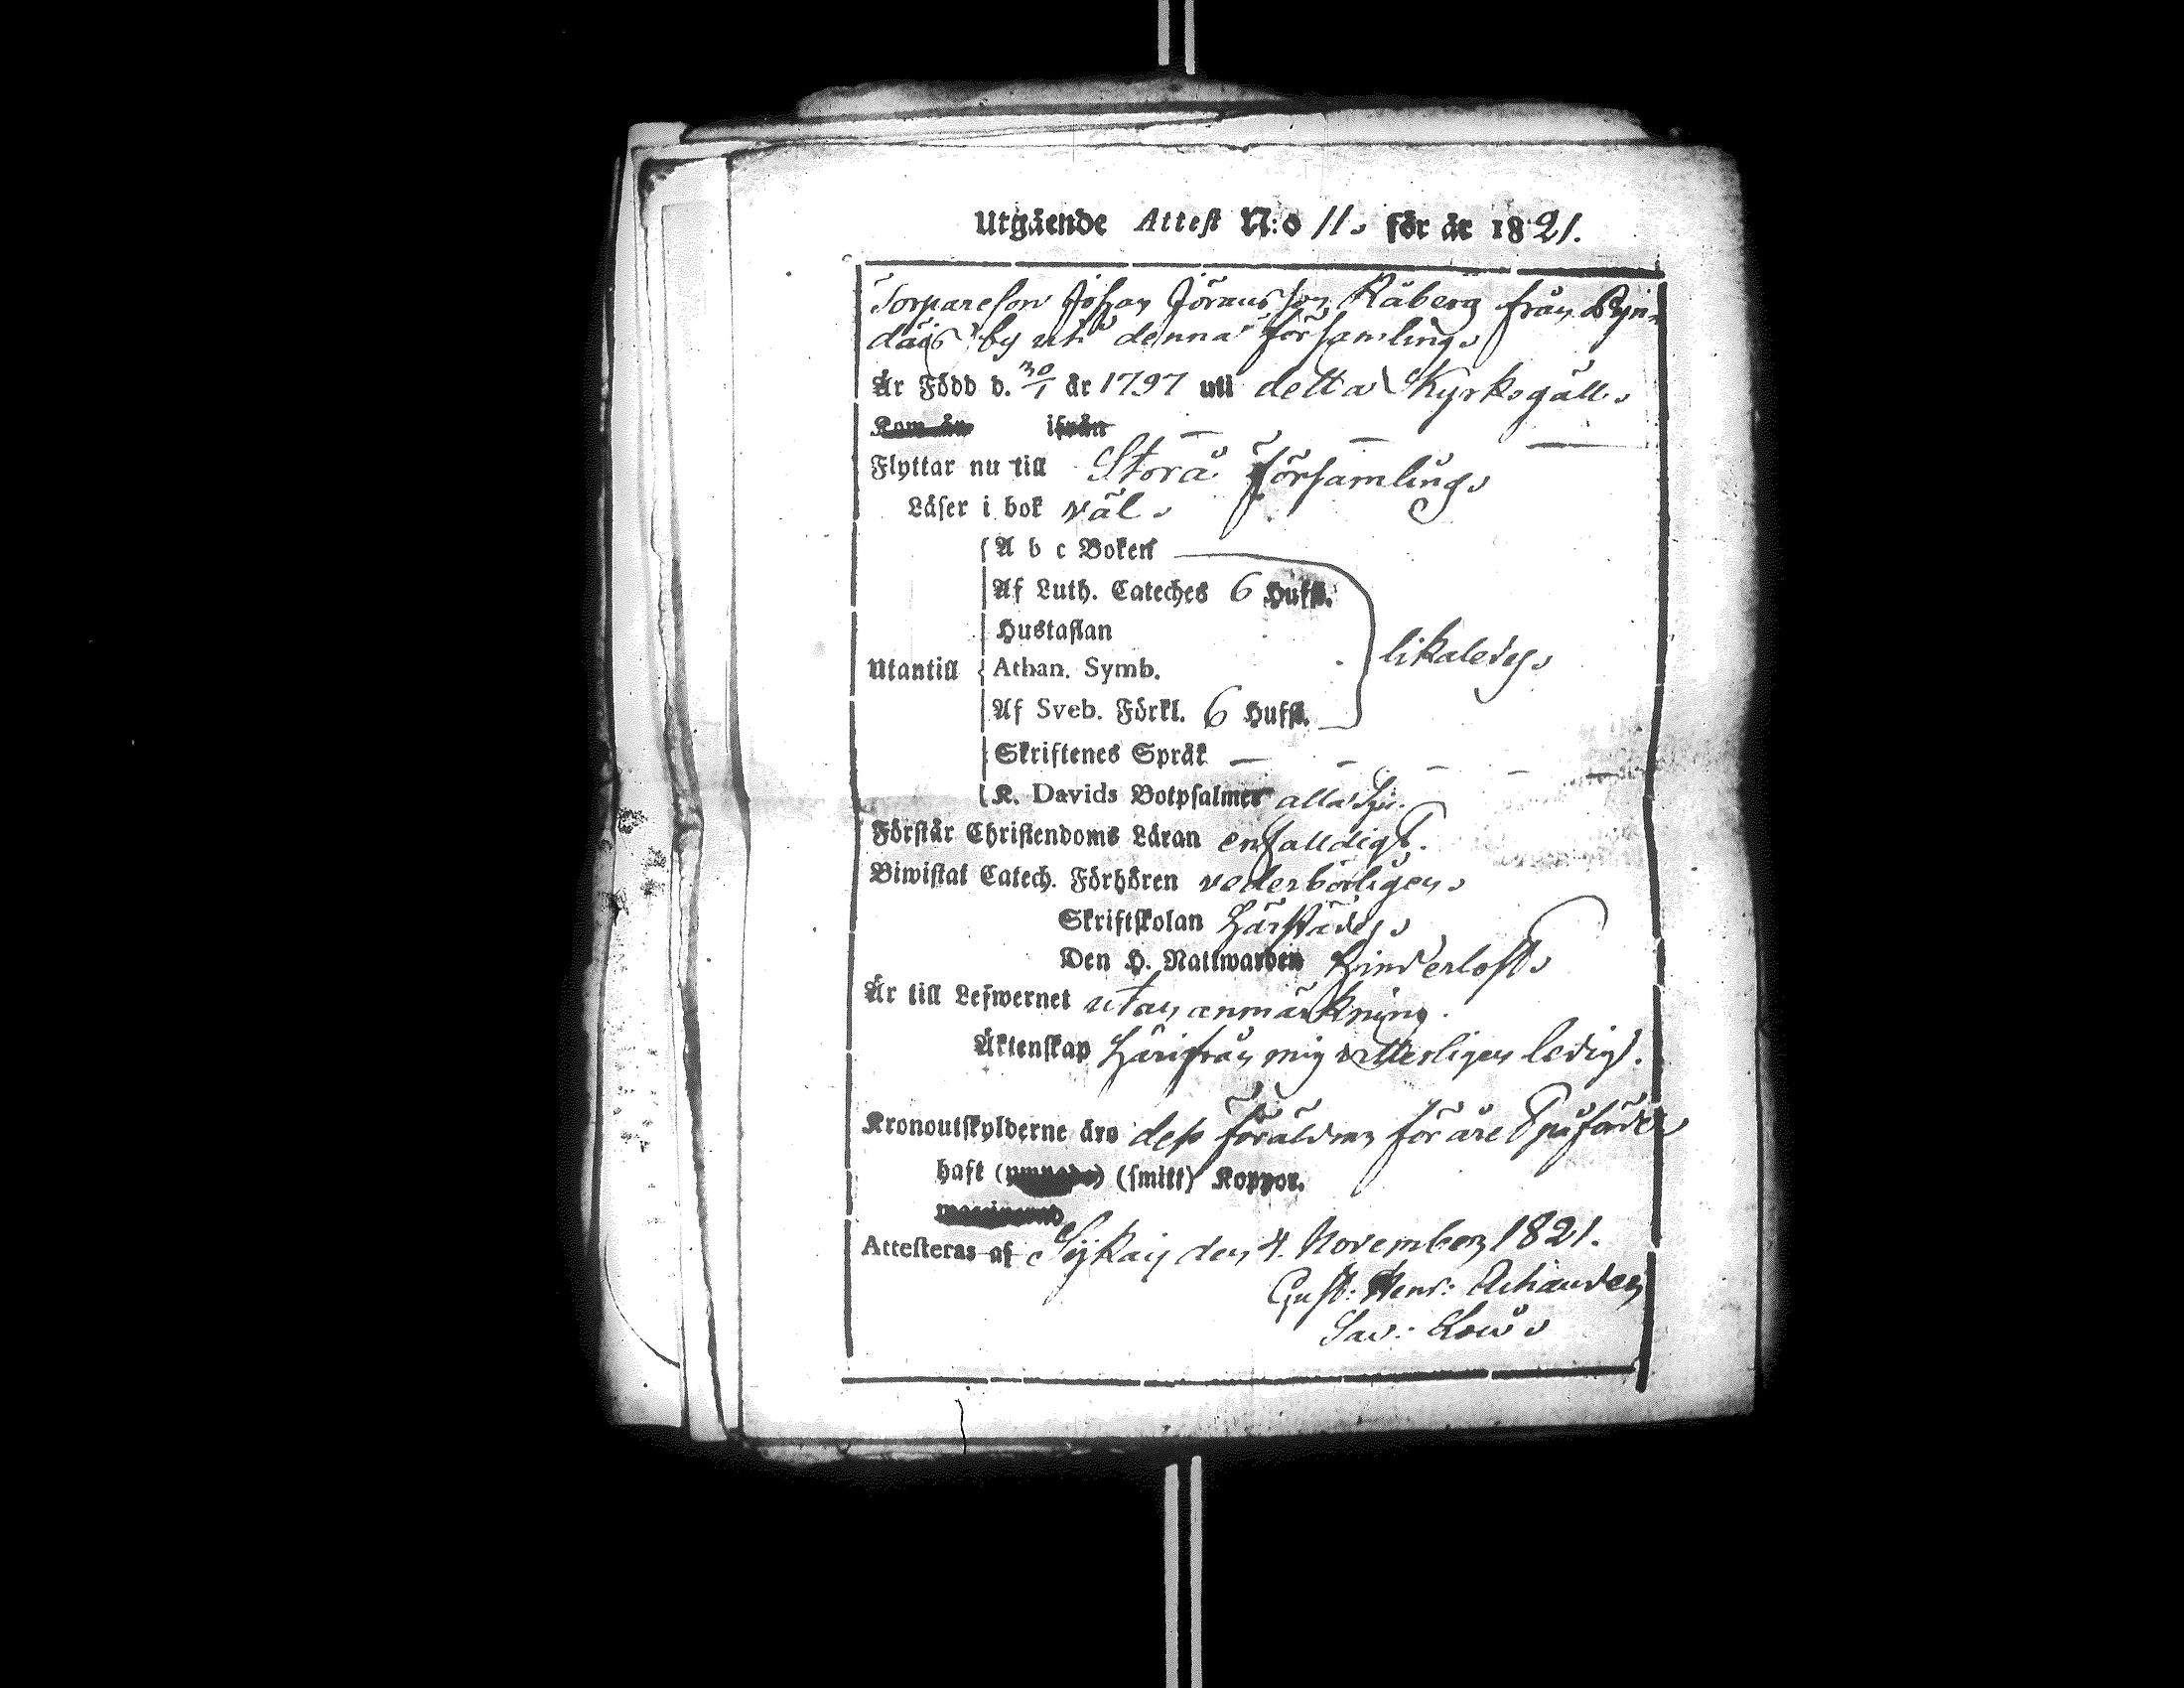 Utgående Attest N:o 11. för år 1821.
Torpareson Johan Göransson Råberg från Pyn-
däis by uti denna församling.
År Född d. 30/1 år 1797 uti detta Kyrkogäll.
Kom år ifrån — —
Flyttar nu till Storå församling.
Läser i bok väl.
A b c Boken
Af Luth. Cateches 6 Hufst.
Hustaflan
Utantill Athan. Symb. likaledes.
Af Sveb. Förkl. 6 Hufst.
Skriftenes Språk — — — — —
K. Davids Botpsalmer alla
Förstår Christendoms Läran enfalldigt.
Biwistat Catech. Förhören vederbörligen.
Skriftskolan härstädes.
Den H. Nattwarden hinderlöst.
Är till Lefwernet utan anmärkning.
Äktenskap härifrån mig vitterligen ledig.
Kronoutskylderne äro dess föräldrar för åre
haft (smitt) Koppor.
Attesteras af Sijkais den 4. November 1821.
Gust: Henr: